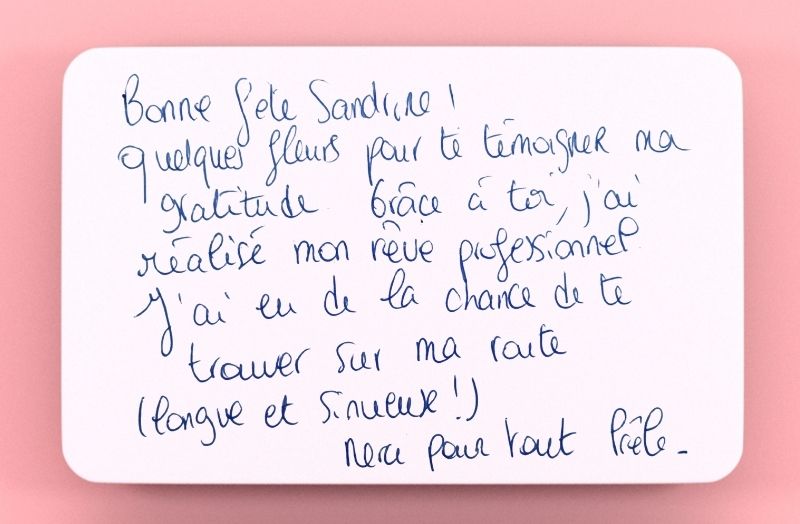 Bonne fête Sandrine !
quelques fleurs pour te témoigner ma
gratitude. Grâce à toi, j'ai
réalisé mon rêve professionnel.
J'ai eu de la chance de te
trouver sur ma route
(longue et sinueuse !)
Merci pour tout